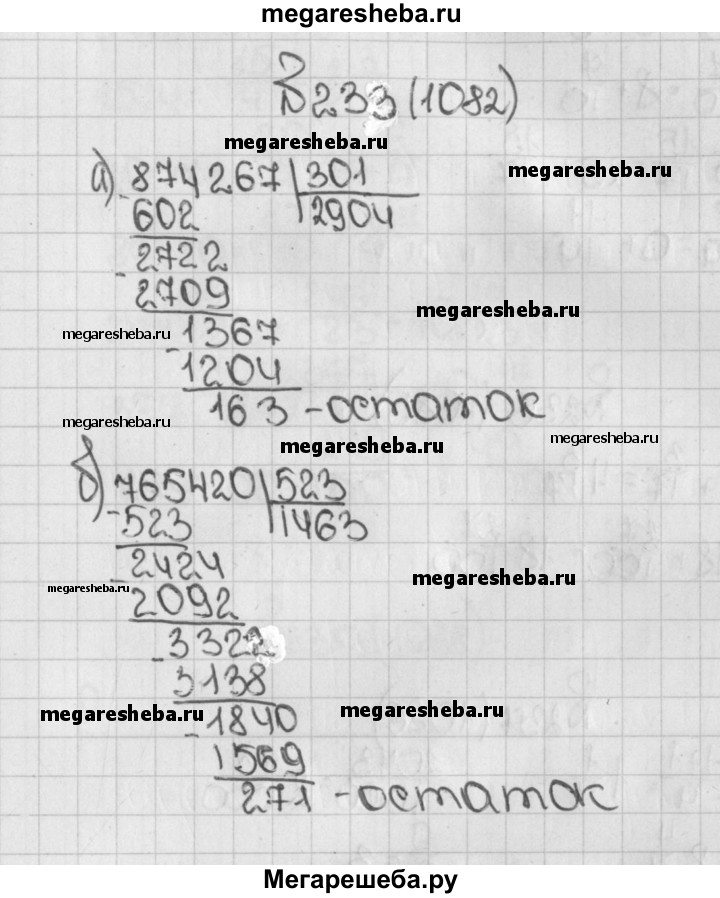 megaresheba.ru
№233(1082)
megaresheba.ru
megaresheba.ru
а) 874267 | 301
- 602 | 2904
2722
- 2709
megaresheba.ru
megaresheba.ru
1367
- 1204
163 - остаток
megaresheba.ru
megaresheba.ru
megaresheba.ru
б) 765420 | 523
- 523 | 1463
2424
- 2092
megaresheba.ru
megaresheba.ru
3322
- 3138
megaresheba.ru
megaresheba.ru
1840
- 1569
271 - остаток
Мегарешеба.ру